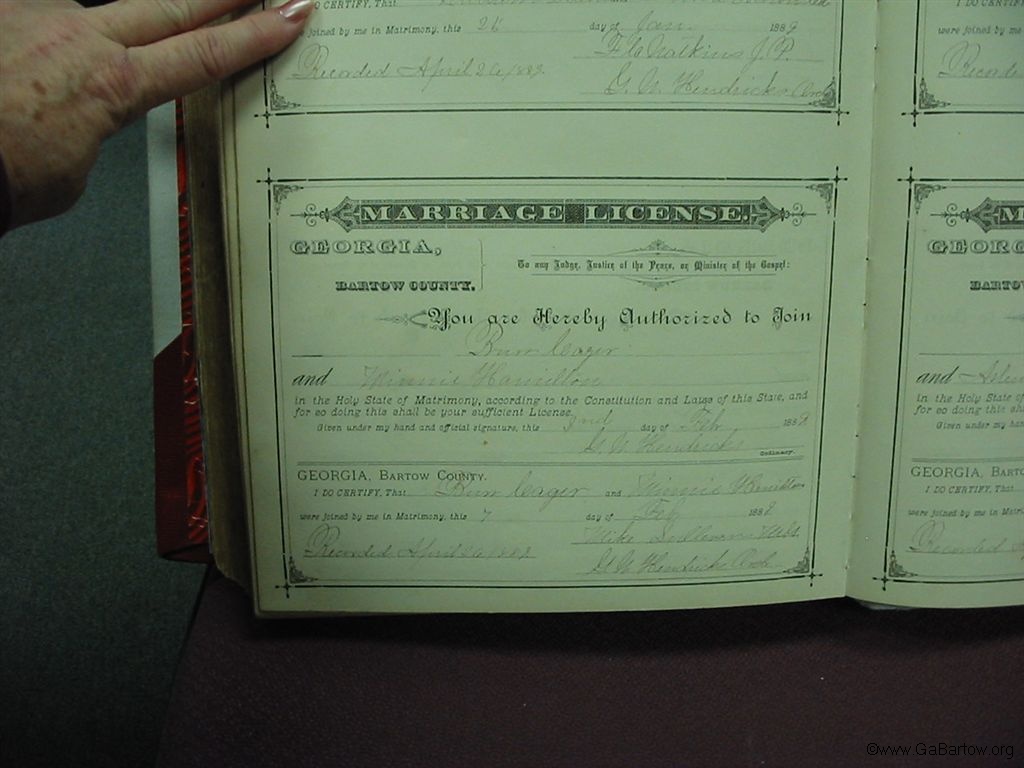 O CERTIFY, That
were joined by me in Matrimony, this 26 day of Jan 1889
J. P.
Recorded April 26, 1889.
G. W. Hendricks Ord
I DO CERTIFY
were joined by me
Recorded
MARRIAGE LICENSE.
GEORGIA,
BARTOW COUNTY.
To any Judge, Justice of the Peace, or Minister of the Gospel:
You are Hereby Authorized to Join
Burr Cager
and Minnie Hamilton
in the Holy State of Matrimony, according to the Constitution and Laws of this State, and
for so doing this shall be your sufficient License.
Given under my hand and official signature, this 2nd day of Feb 188
G. W. Hendricks
Ordinary.
GEORGIA, BARTOW COUNTY.
I DO CERTIFY, That Burr Cager and Minnie Hamilton
were joined by me in Matrimony, this 7 day of Feb 188
Mike
Recorded April 26, 1889
G. W. Hendricks Ord
M
GEORG
BARTOW
and
in the Holy State of
for so doing this sha
Given under my han
GEORGIA, BARTO
I DO CERTIFY, That
were joined by me in Matrim
Recorded
©www.GaBartow.org